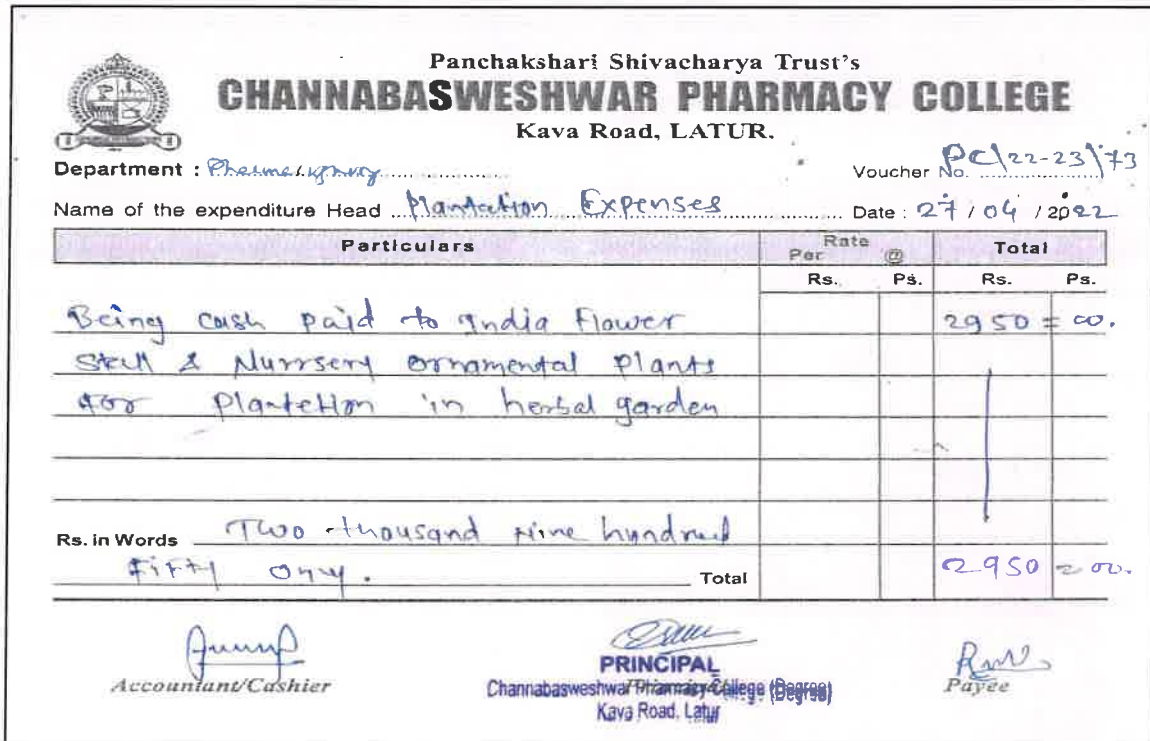 Panchakshari Shivacharya Trust's
CHANNABASWESHWAR PHARMACY COLLEGE
Kava Road, LATUR.
Department :
Voucher No. PC\22-23\73
Name of the expenditure Head Plantation Expenses Date : 27 / 04 / 2022
Particulars Rate Per @ Total
Rs. Ps. Rs. Ps.
Being cash paid to India Flower 2950 = 00.
Stall & Nurrsery ornamental plants
for Plantetion in herbal garden
Rs. in Words Two thousand Nine hundred
Fifty Only. Total 2950 = 00.
Accountant/Cashier
PRINCIPAL
Channabasweshwar Pharmacy College (Degree)
Kava Road, Latur
Payee